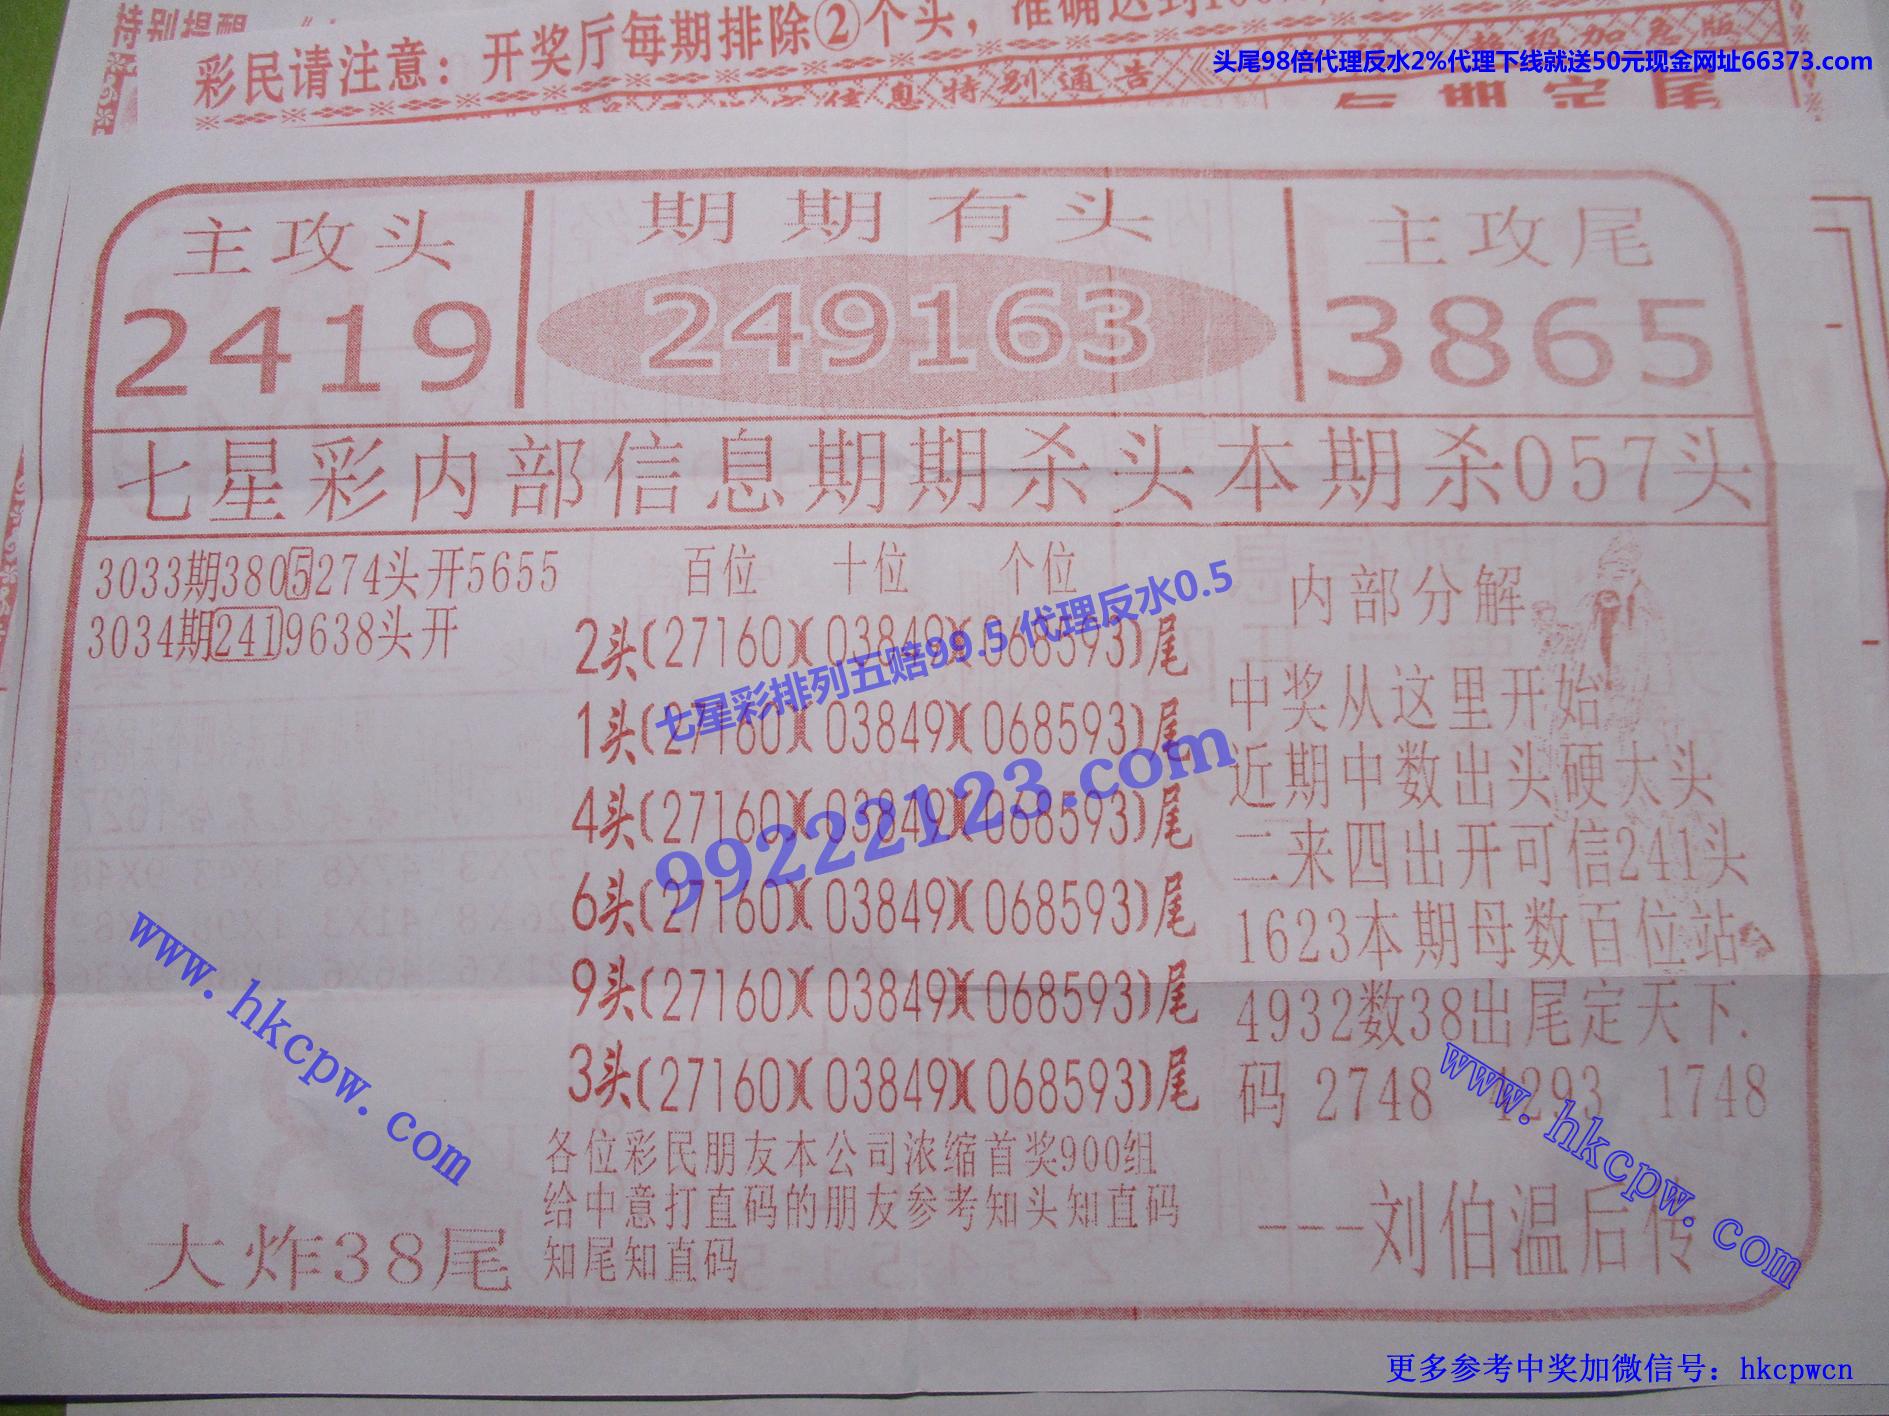 特别提醒
彩民请注意：开奖厅每期排除②个头，准确达到100
头尾98倍代理反水2%代理下线就送50元现金网址66373.com
信息特别通告
主攻头
2419
期期有头
249163
主攻尾
3865
七星彩内部信息期期杀头本期杀057头
3033期3805274头开5655
3034期2419638头开
百位 十位 个位
2头(27160)(03849)(068593)尾
1头(27160)(03849)(068593)尾
4头(27160)(03849)(068593)尾
6头(27160)(03849)(068593)尾
9头(27160)(03849)(068593)尾
3头(27160)(03849)(068593)尾
七星彩排列五赔99.5 代理反水0.5
99222123.com
内部分解
中奖从这里开始
近期中数出头硬大头
二来四出开可信241头
1623本期母数百位站
4932数38出尾定天下.
码 2748 4293 1748
---刘伯温后传
各位彩民朋友本公司浓缩首奖900组
给中意打直码的朋友参考知头知直码
知尾知直码
大炸38尾
www.hkcpw.com
www.hkcpw.com
更多参考中奖加微信号：hkcpwcn